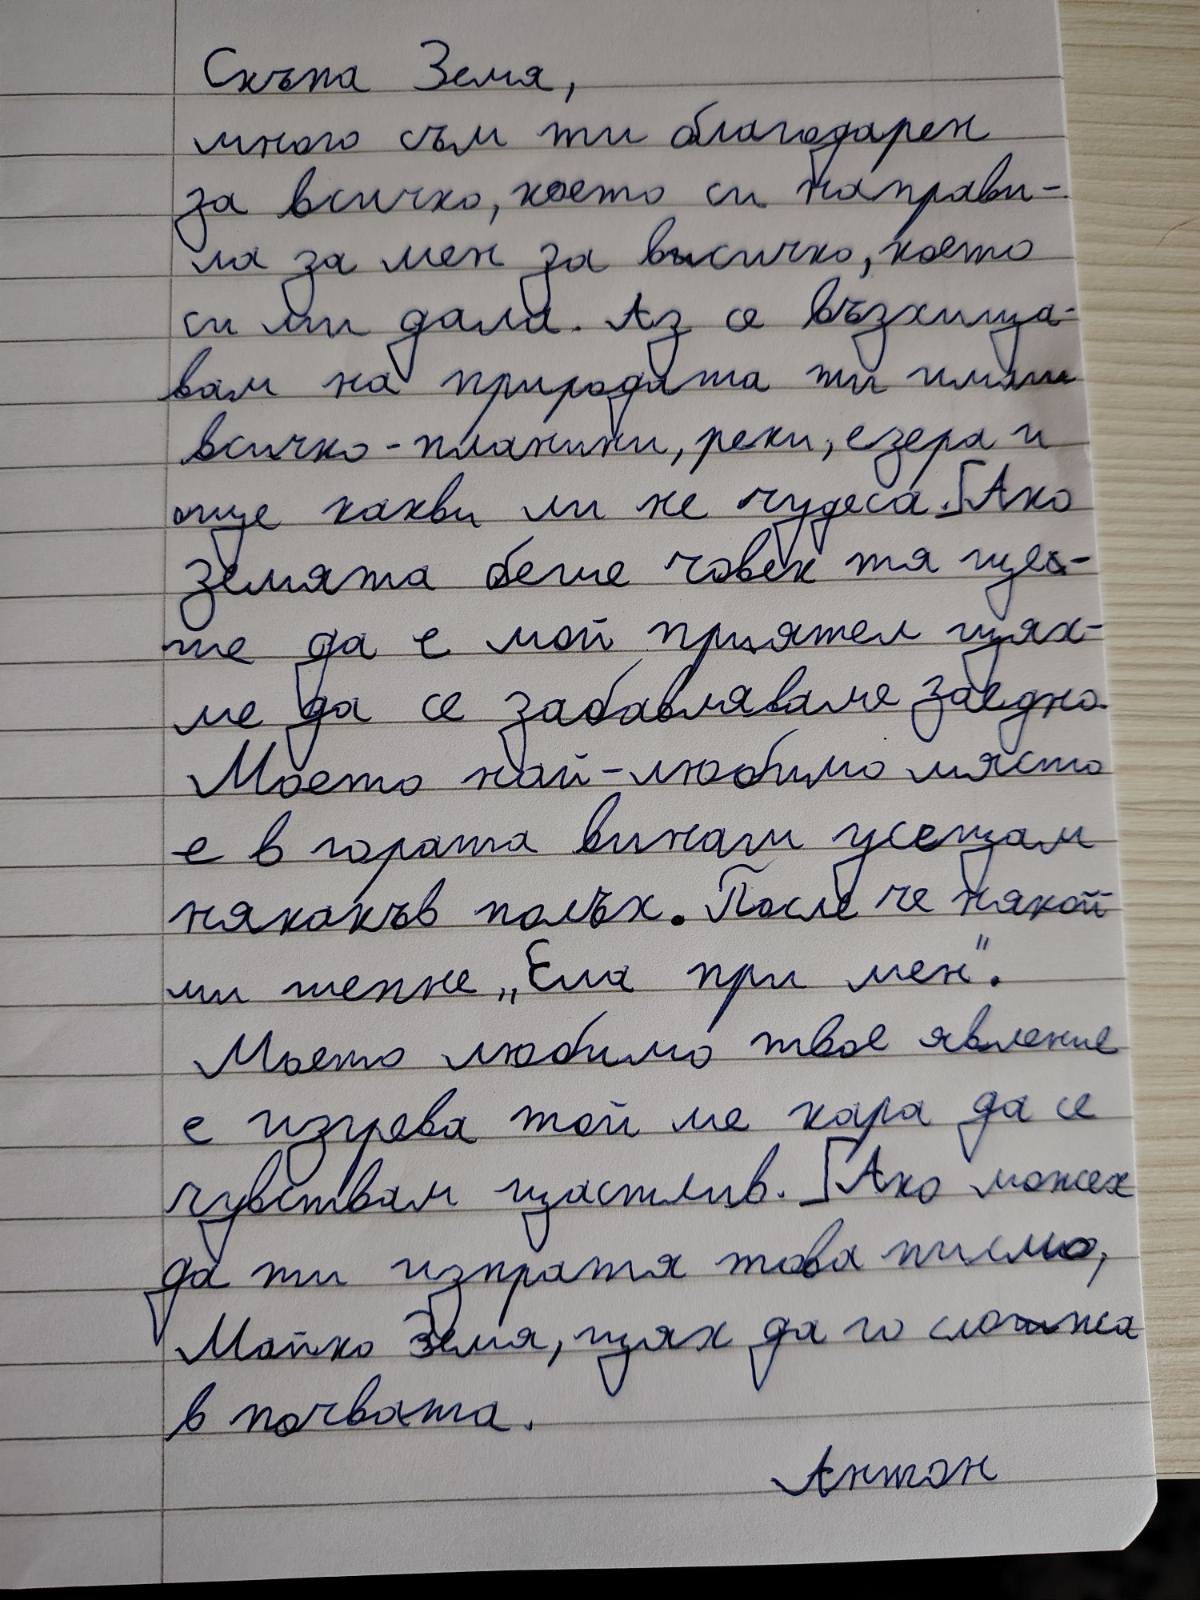 Скъпа Земя,
много съм ти благодарен
за всичко, което си направи-
ла за мен за всичко, което
си ми дала. Аз се възхища-
вам на природата ти имаш
всичко - планини, реки, езера и
още какви ли не чудеса. ⌈Ако
земята беше човек тя щеш-
ше да е мой приятел щях-
ме да се забавляваме заедно.
Моето най-любимо място
е в гората винаги усещам
някакъв полъх. После че някой
ми шепне „Ела при мен".
Моето любимо твое явление
е изгрева той ме кара да се
чувствам щастлив. ⌈Ако можех
да ти изпратя това писмо,
Майко Земя, щях да го сложа
в почвата.
Антон